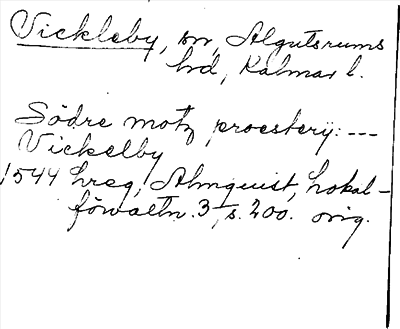 Vickleby, sn, Algutsrums
hd, Kalmar l.
Södre motz proestery: ---
Vickelby
1544 hreg, Almquist, Lokal-
förvaltn. 3, s. 200. orig.